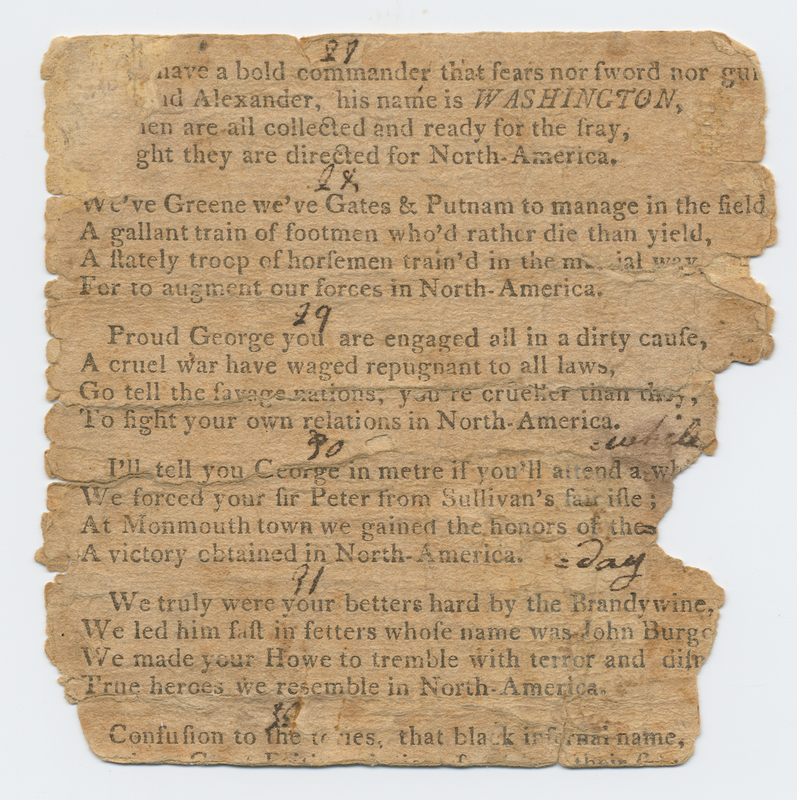 27
have a bold commander that fears nor ſword nor gun
Alexander, his name is WASHINGTON,
are all collected and ready for the fray,
they are directed for North-America.
28
We've Greene we've Gates & Putnam to manage in the field
A gallant train of footmen who'd rather die than yield,
A ſtately troop of horſemen train'd in the way
For to augment our forces in North-America.
29
Proud George you are engaged all in a dirty cauſe,
A cruel war have waged repugnant to all laws,
Go tell the ſavage nations, you're crueller than they,
To fight your own relations in North-America.
=while
30
I'll tell you George in metre if you'll attend a wh
We forced your ſir Peter from Sullivan's fair iſle ;
At Monmouth town we gained the honors of the=
A victory obtained in North-America. =day
31
We truly were your betters hard by the Brandywine,
We led him faſt in fetters whoſe name was John Burgo
We made your Howe to tremble with terror and diſm
True heroes we resemble in North-America.
Confuſion to the tories, that black infernal name,